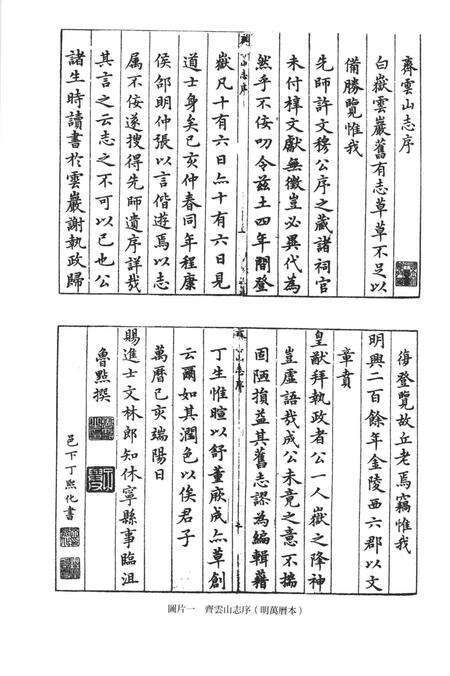 齊雲山志序
白嶽雲巖舊有志草草不足以
備勝覽惟我
先師許文穆公序之藏諸祠官
未付梓文獻無徵豈必異代為
然乎不佞叨令茲土四年間登
嶽凡十有六日亦十有六日見
道士身矣己亥仲春同年程康
侯邵明仲張以言偕遊焉以志
属不佞遂搜得先師遺序詳哉
其言之云志之不可以已也公
諸生時讀書於雲巖謝執政歸
復登覽故丘老焉竊惟我
明興二百餘年金陵西六郡以文
章賁
皇猷拜執政者公一人嶽之降神
豈虛語哉成公未竟之意不揣
固陋損益其舊志謬為編輯藉
丁生惟暄以舒董厥成亦草創
云爾如其潤色以俟君子
萬曆己亥端陽日
賜進士文林郎知休寧縣事臨沮
魯點撰
邑下丁熙化書
圖片一　齊雲山志序（明萬曆本）